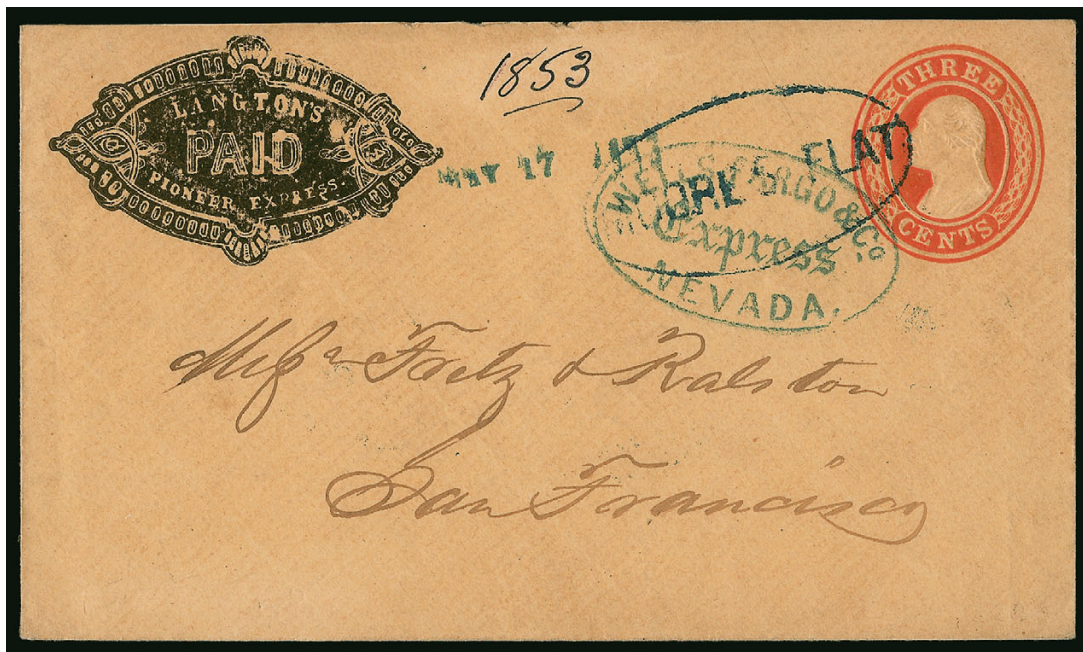 LANGTON'S
PAID
PIONEER EXPRESS.
1853
17
FLAT
WELLS FARGO & Co.
Express
NEVADA.
THREE
CENTS
Fretz & Ralston
San Francisco